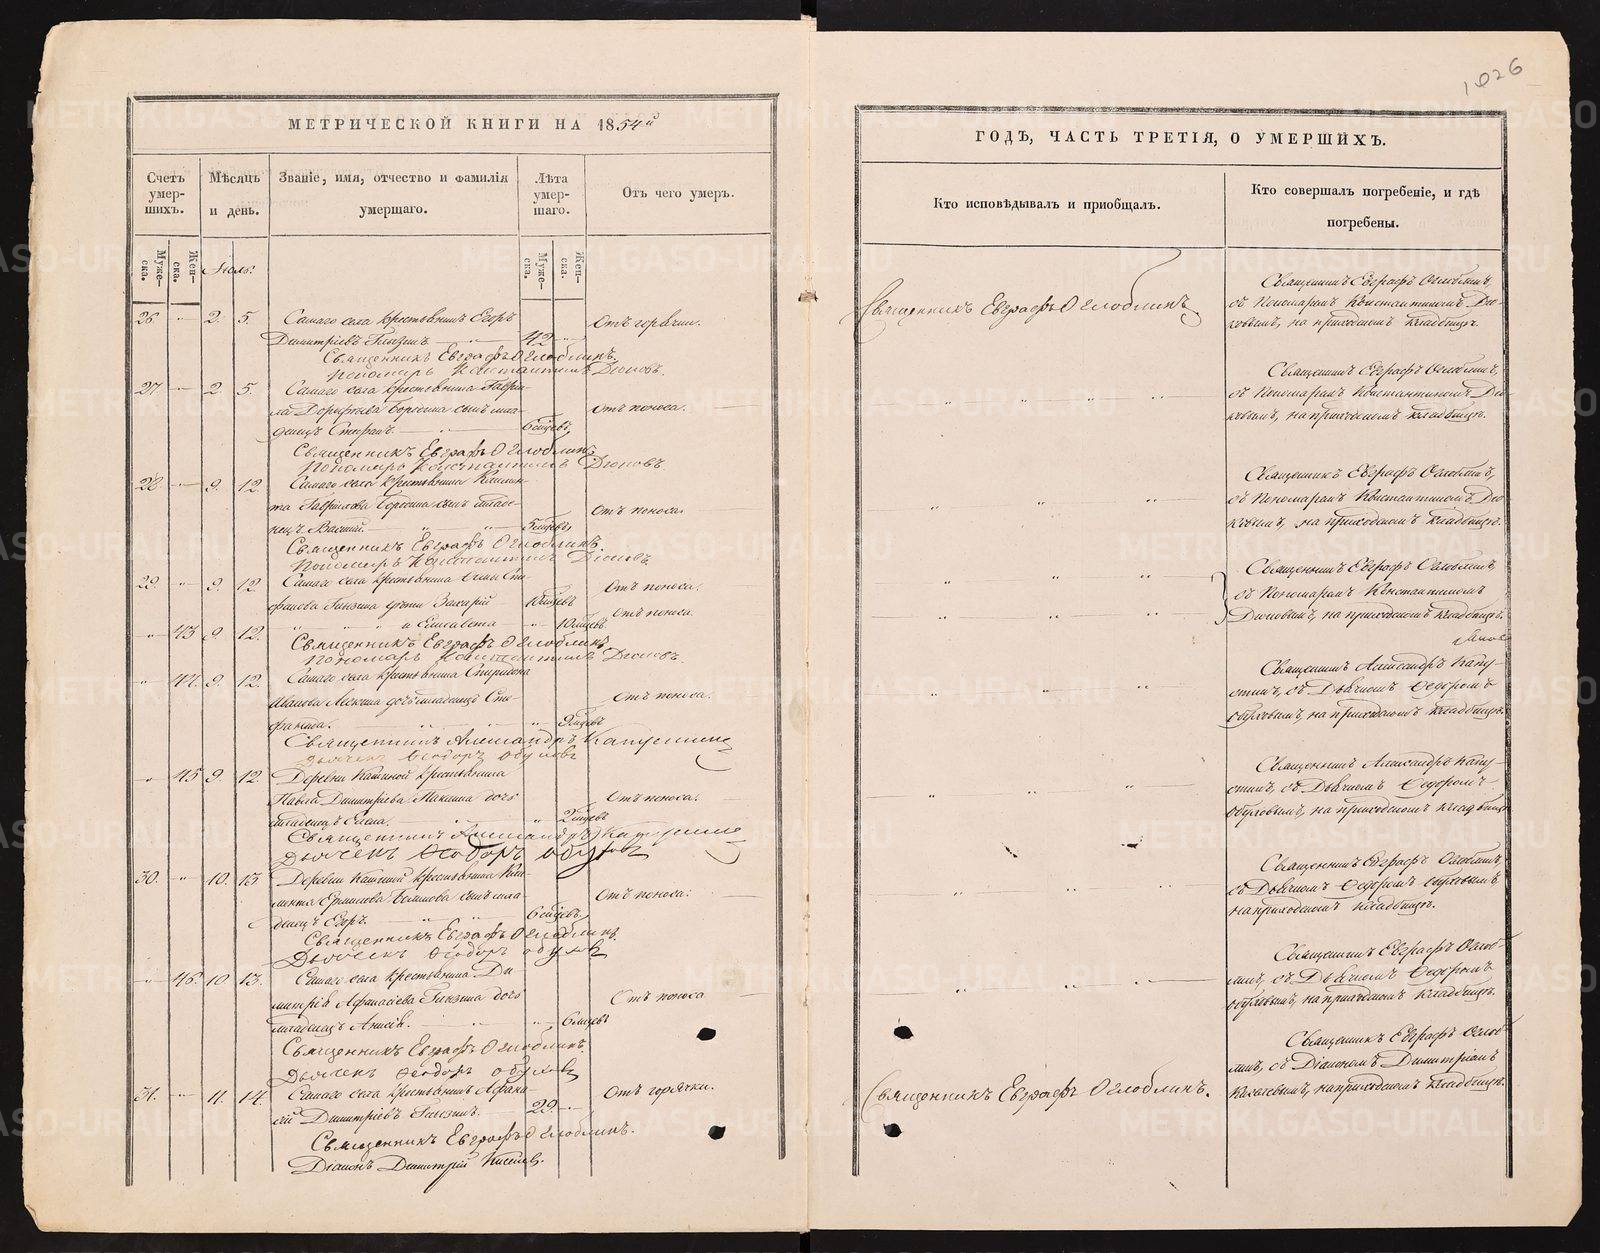 1026
МЕТРИЧЕСКОЙ КНИГИ НА 1854й
Счетъ умер-
шихъ.
Муже-
ска.
Жен-
ска.
Мѣсяцъ
и день.
Званіе, имя, отчество и фамилія
умершаго.
Лѣта
умер-
шаго.
Муже-
ска.
Жен-
ска.
Отъ чего умеръ.
Іюль.
26. 2. 5. Самаго села крестьянинъ Егоръ
Димитріевъ 42 Отъ горячки.
Священникъ Евграфъ Оглоблинъ.
Пономарь Константинъ Діоновъ.
27. 2. 5. Самаго села крестьянина Гаври-
ла сынъ мла-
денецъ Стефанъ. 6 мцевъ Отъ поноса.
Священникъ Евграфъ Оглоблинъ.
Пономарь Константинъ Діоновъ.
28. 9. 12. Самаго села крестьянина
Гаврилова сынъ младе-
нецъ Василій. 5 мцевъ Отъ поноса.
Священникъ Евграфъ Оглоблинъ.
Пономарь Константинъ Діоновъ.
29. 9. 12. Самаго села крестьянина Сте-
фанова дѣти Захарій Отъ поноса.
43 9. 12. и Елисавета 10 мцевъ Отъ поноса.
Священникъ Евграфъ Оглоблинъ.
Пономарь Константинъ Діоновъ.
44. 9. 12. Самаго села крестьянина Спиридона
Иванова дочь младенецъ Сте-
фанида. Отъ поноса.
Священникъ Александръ Капустинъ
Дьячекъ Ѳеодоръ Обуховъ
45 9. 12. Деревни крестьянина
Павла Димитріева дочь
младенецъ Елена. 2 мцевъ Отъ поноса.
Священникъ Александръ Капустинъ
Дьячекъ Ѳеодоръ Обуховъ
30. 10. 13. Деревни крестьянина
Ермилова сынъ мла-
денецъ Егоръ. 6 мцевъ Отъ поноса.
Священникъ Евграфъ Оглоблинъ.
Дьячекъ Ѳеодоръ Обуховъ
46. 10 13. Самаго села крестьянина Ди-
митрія Афанасіева дочь
младенецъ Анисія. 6 мцевъ Отъ поноса
Священникъ Евграфъ Оглоблинъ.
Дьячекъ Ѳеодоръ Обуховъ
31. 11. 14. Самаго села крестьянинъ Афана-
сій Димитріевъ 29. Отъ горячки.
Священникъ Евграфъ Оглоблинъ.
Діаконъ Димитрій
ГОДЪ, ЧАСТЬ ТРЕТІЯ, О УМЕРШИХЪ.
Кто исповѣдывалъ и пріобщалъ.
Кто совершалъ погребеніе, и гдѣ
погребены.
Священникъ Евграфъ Оглоблинъ.
Священникъ Евграфъ Оглоблинъ,
съ Пономаремъ Константиномъ Діо-
новымъ, на приходскомъ кладбищѣ.
Священникъ Евграфъ Оглоблинъ,
съ Пономаремъ Константиномъ Діо-
новымъ, на приходскомъ кладбищѣ.
Священникъ Евграфъ Оглоблинъ,
съ Пономаремъ Константиномъ Діо-
новымъ, на приходскомъ кладбищѣ.
Священникъ Евграфъ Оглоблинъ
съ Пономаремъ Константиномъ
Діоновымъ, на приходскомъ кладбищѣ.
Священникъ Александръ Капу-
стинъ, съ Дьячкомъ Ѳеодоромъ
Обуховымъ, на приходскомъ кладбищѣ.
Священникъ Александръ Капу-
стинъ, съ Дьячкомъ Ѳеодоромъ
Обуховымъ, на приходскомъ кладбищѣ
Священникъ Евграфъ Оглоблинъ,
съ Дьячкомъ Ѳеодоромъ Обуховымъ,
на приходскомъ кладбищѣ.
Священникъ Евграфъ Оглоб-
линъ, съ Дьячкомъ Ѳеодоромъ
Обуховымъ, на приходскомъ кладбищѣ.
Священникъ Евграфъ Оглоблинъ.
Священникъ Евграфъ Оглоб-
линъ, съ Діакономъ Димитріемъ
на приходскомъ кладбищѣ.
METRIKI.GASO-URAL.RU